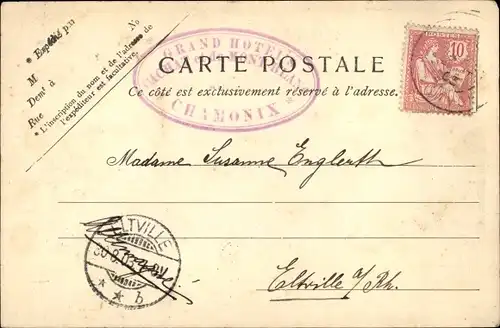 * Expédié par
No
M
Demt à
Rue
* L'inscription du nom et de l'adresse de
l'expéditeur est facultative.
GRAND HOTEL
CHAMONIX
CARTE POSTALE
Ce côté est exclusivement réservé à l'adresse.
10
POSTES
Madame Susanne Englerth
Eltville a/Rh.
ELTVILLE
* * b